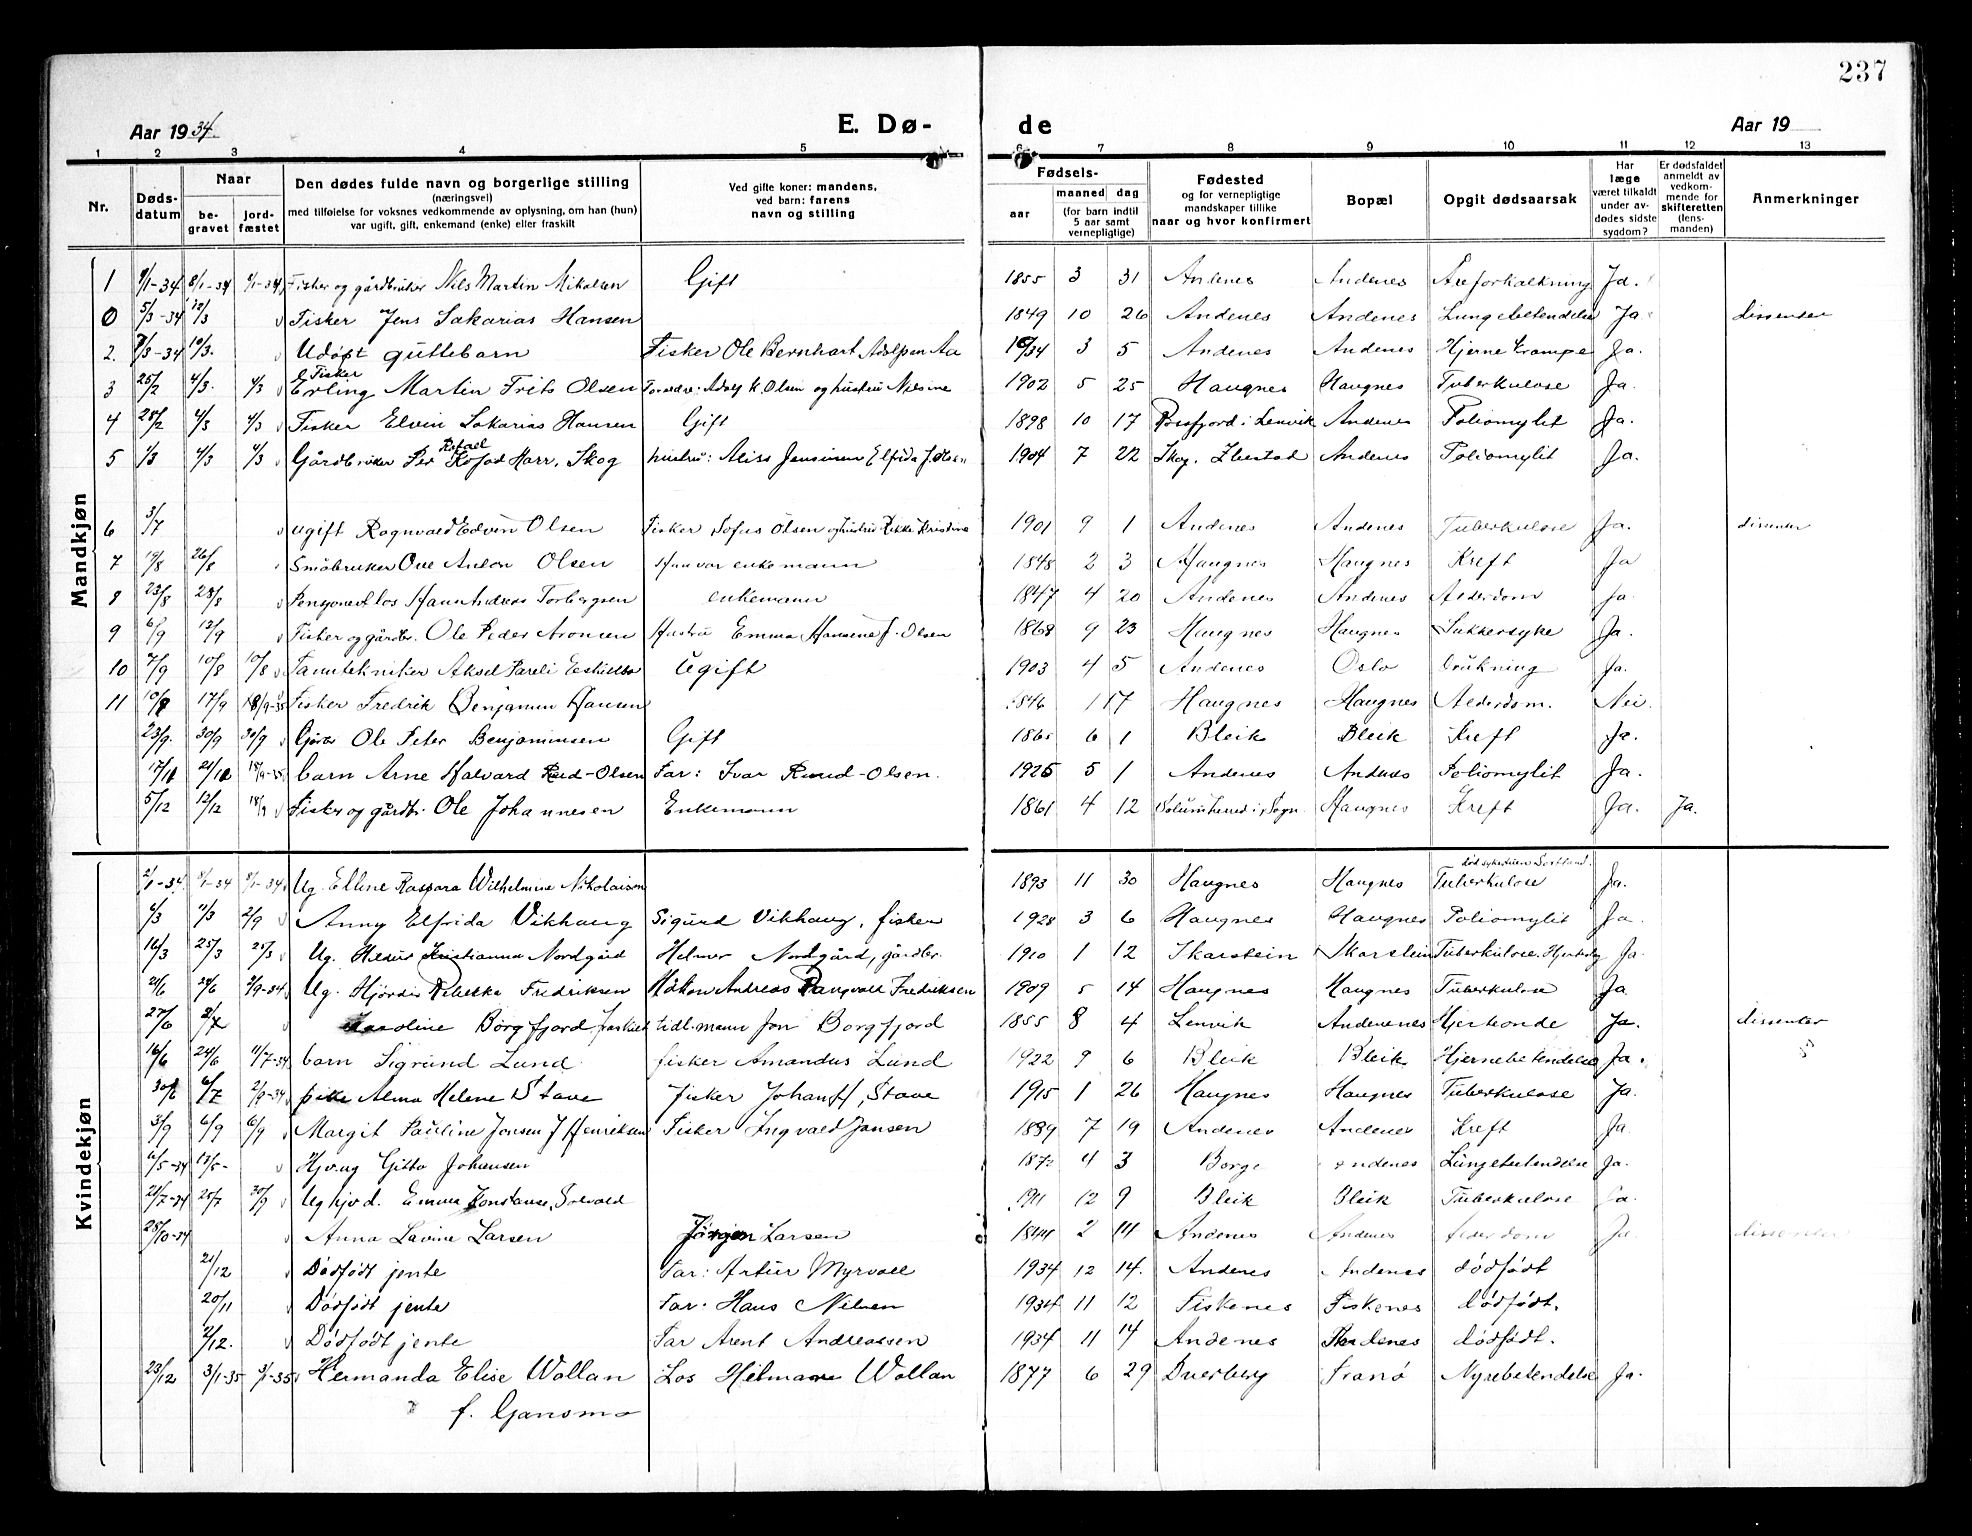 237
Aar 1934. E. Dø- de Aar 19
1 2 3 4 5 6 7 8 9 10 11 12 13
Nr. Dødsdatum Naar begravet jordfæstet Den dødes fulde navn og borgerlige stilling (næringsvei) med tilføielse for voksnes vedkommende av oplysning, om han (hun) var ugift, gift, enkemand (enke) eller fraskilt Ved gifte koner: mandens, ved barn: farens navn og stilling Fødsels- aar maaned dag (for barn indtil 5 aar samt vernepligtige) Fødested og for vernepligtige mandskaper tillike naar og hvor konfirmert Bopæl Opgit dødsaarsak Har læge været tilkaldt under avdødes sidste sygdom? Er dødsfaldet anmeldt av vedkommende for skifteretten (lensmanden) Anmerkninger
Mandkjøn
1 8/1-34 Fisker og gårdbruker Nils Martin Mikalsen Gift 1855 3 31 Andenes Andenes Areforkalkning Ja.
0 5/3-34 12/3 Fisker Jens Sakarias Hansen 1849 10 26 Andenes Andenes Lungebetendelse Ja dissenter
2. 10/3. Udøpt guttebarn Fisker Ole Bernhart Adolfsen Aa 1934 3 5 Andenes Andenes Hjerne krampe Ja.
3 25/2 4/3. 4/3 Fisker Erling Martin Frits Olsen Foreldre: Adolf K. Olsen og hustru Nilsine 1902 5 25 Haugnes Haugnes Tuberkulose Ja.
4 28/2 4/3 4/3 Fisker Elvin Sakarias Hansen Gift 1898 10 17 Rossfjord i Lenvik Andenes Poliomylit Ja.
5 1/3 4/3 4/3 Gårdbruker Per Harr, Skog hustru: Aliss Jensine Elfrida f. Olsen 1904 7 22 Skog, Ibestad Andenes Poliomylit Ja.
6 3/7 ugift Ragnvald Edvin Olsen Fisker Sofus Olsen og hustru Rikka Kristine 1901 9 1 Andenes Andenes Tuberkulose Ja. dissenter
7 19/8 26/8 Småbruker Ove Anton Olsen Han var enkemann 1848 2 3 Haugnes Haugnes Kreft Ja
8 23/8 28/8 Hans Andreas Torbergsen enkemann 1847 4 20 Andenes Andenes Alderdom Ja
9 6/9 12/9 Fisker og gårdbr. Ole Peder Aronsen Hustru Emma Hansine f. Olsen 1868 9 23 Haugnes Haugnes Sukkersyke Ja.
10 7/9 10/8 10/8 Tanntekniker Aksel Pareli Eskildsen Ugift 1903 4 5 Andenes Oslo Drukning Ja.
11 17/9 18/9-35 Fisker Fredrik Benjamin Hansen 1846 1 17 Haugnes Haugnes Alderdom. Nei.
23/9. 30/9 30/9 Ole Peter Benjaminsen Gift 1865 6 1 Bleik Bleik Kreft Ja.
17/11 18/9-35 barn Arne Halvard Rud-Olsen Far: Ivar Ruud-Olsen. 1925 5 1 Andenes Andenes Poliomylit Ja.
5/12 12/12 18/9 Fisker og gårdbr. Ole Johannesen Enkemann 1861 4 12 Haugnes Kreft Ja. Ja.
Kvindekjøn
2/1-34 8/1-34 8/1-34 Ug. Elline Kaspara Wilhelmine Nikolaisen 1893 11 30 Haugnes Haugnes død sykehuset Sortland. Tuberkulose Ja.
6/3 11/3 2/9 Anny Elfrida Vikhaug Sigurd Vikhaug, fisker 1928 3 6 Haugnes Haugnes Poliomylit Ja
16/3 25/3 25/3 Ug. Kristianna Nordgård Helmer Nordgård, gårdbr. 1910 1 12 Skarstein Skarstein Tuberkulose. Ja.
21/6 2/9-34 Ug. Hjørdis Rebekka Fredriksen Håkon Andreas Rangvald Fredriksen 1909 5 14 Haugnes Haugnes Tuberkulose Ja.
27/6 2/7 Karoline Borgfjord, fraskilt tidl. mann Jon Borgfjord 1855 8 4 Lenvik Andenes Hjerteonde Ja. dissenter
16/6 24/6 11/7-34 barn Sigrund Lund fisker Amandus Lund 1922 9 6 Bleik Bleik Hjernebetendelse Ja.
30/6 6/7 2/9-34 pike Alma Helene Stave Fisker Johan H. Stave 1915 1 26 Haugnes Haugnes Tuberkulose Ja.
3/9 6/9 6/9 Margit Pauline Jensen f Henriksen Fisker Ingvald Jansen 1889 7 19 Andenes Andenes Kreft Ja.
6/5-34 13/5- Gitta Johansen 4 3 Borge Andenes Lungebetendelse Ja.
21/7-34 25/7 30/9 Emma Konstanse Solvold 1911 12 9 Bleik Bleik Tuberkulose Ja.
28/10-34 Anna Lavine Larsen Jørgen Larsen 1844 2 14 Andenes Andenes Alderdom Ja. dissenter
21/12 Dødfødt jente Far: Artur Myrvoll 1934 12 14. Andenes Andenes dødfødt
20/11 Dødfødt jente Far: Hans Nilsen 1934 11 12 Fiskenes Fiskenes dødfødt.
2/12. Dødfødt jente Far Arent Andreassen 1934 11 14 Andenes Andenes dødfødt.
23/12 3/1-35 3/1-35 Hermanda Elise Wollan Los Hilmar Wollan 1877 6 29 Dverberg Tranø Nyrebetendelse Ja.
f. Gansmo